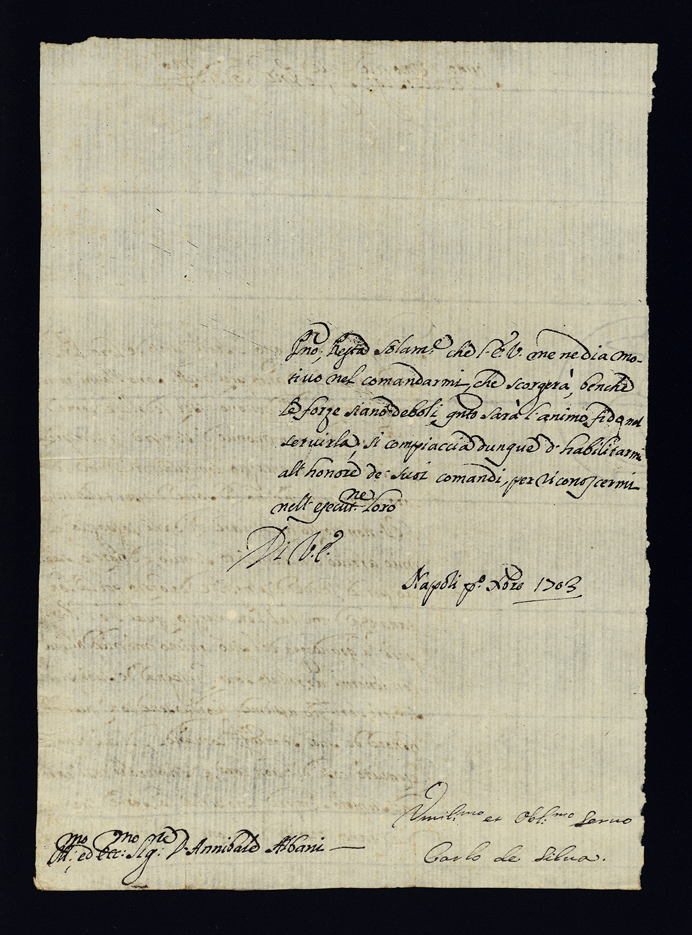 Resta Solam.te che l'E.V. me ne dia mo-
tivo nel comandarmi, che scorgerà, benche
le forze siano deboli, q.nto sarà l'animo fido nel
servirla, si compiaccia dunque d'habilitarmi
all'honore de suoi comandi, per riconoscermi
nell'esecut.ne loro
Di V.E.
Napoli p.o Xbre 1703
Umil.mo et Obl.mo Servo
Carlo de Silva.
Ill.mo ed Ecc.mo Sig.re D. Annibale Albani